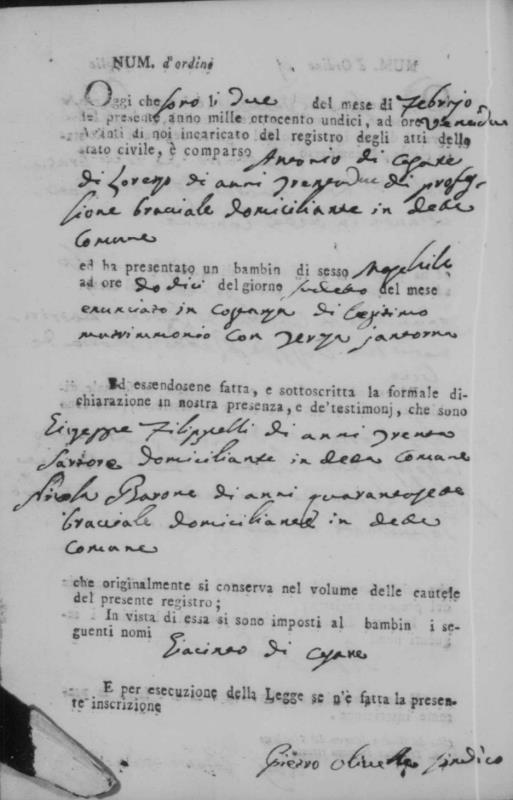 NUM. d'ordine
Oggi che sono li due del mese di Febrajo
del presente anno mille ottocento undici, ad ore venendue
Avanti di noi incaricato del registro degli atti dello
stato civile, è comparso Antonio di Cesare
di Lorenzo di anni trentadue di profes-
sione braciale domiciliante in detta
Comune
ed ha presentato un bambin di sesso
ad ore dodici del giorno sudetto del mese
enunciato in di legitimo
matrimmonio con
Ed essendosene fatta, e sottoscritta la formale di-
chiarazione in nostra presenza, e de'testimonj, che sono
Giuseppe Filippelli di anni trenta
Sartore domiciliante in detta Comune
Nicola Barone di anni quarantasette
braciale domiciliante in detta
Comune
che originalmente si conserva nel volume delle cautele
del presente registro;
In vista di essa si sono imposti al bambin i se-
guenti nomi
Giacinto di Cesare
E per esecuzione della Legge se n'è fatta la presen-
te inscrizione
Pietro Sindico